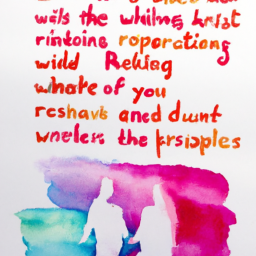 walls the whilns
rintoine roporations
wild Reliag
whate of you
reshavs and dunt
wnelex the prsipples